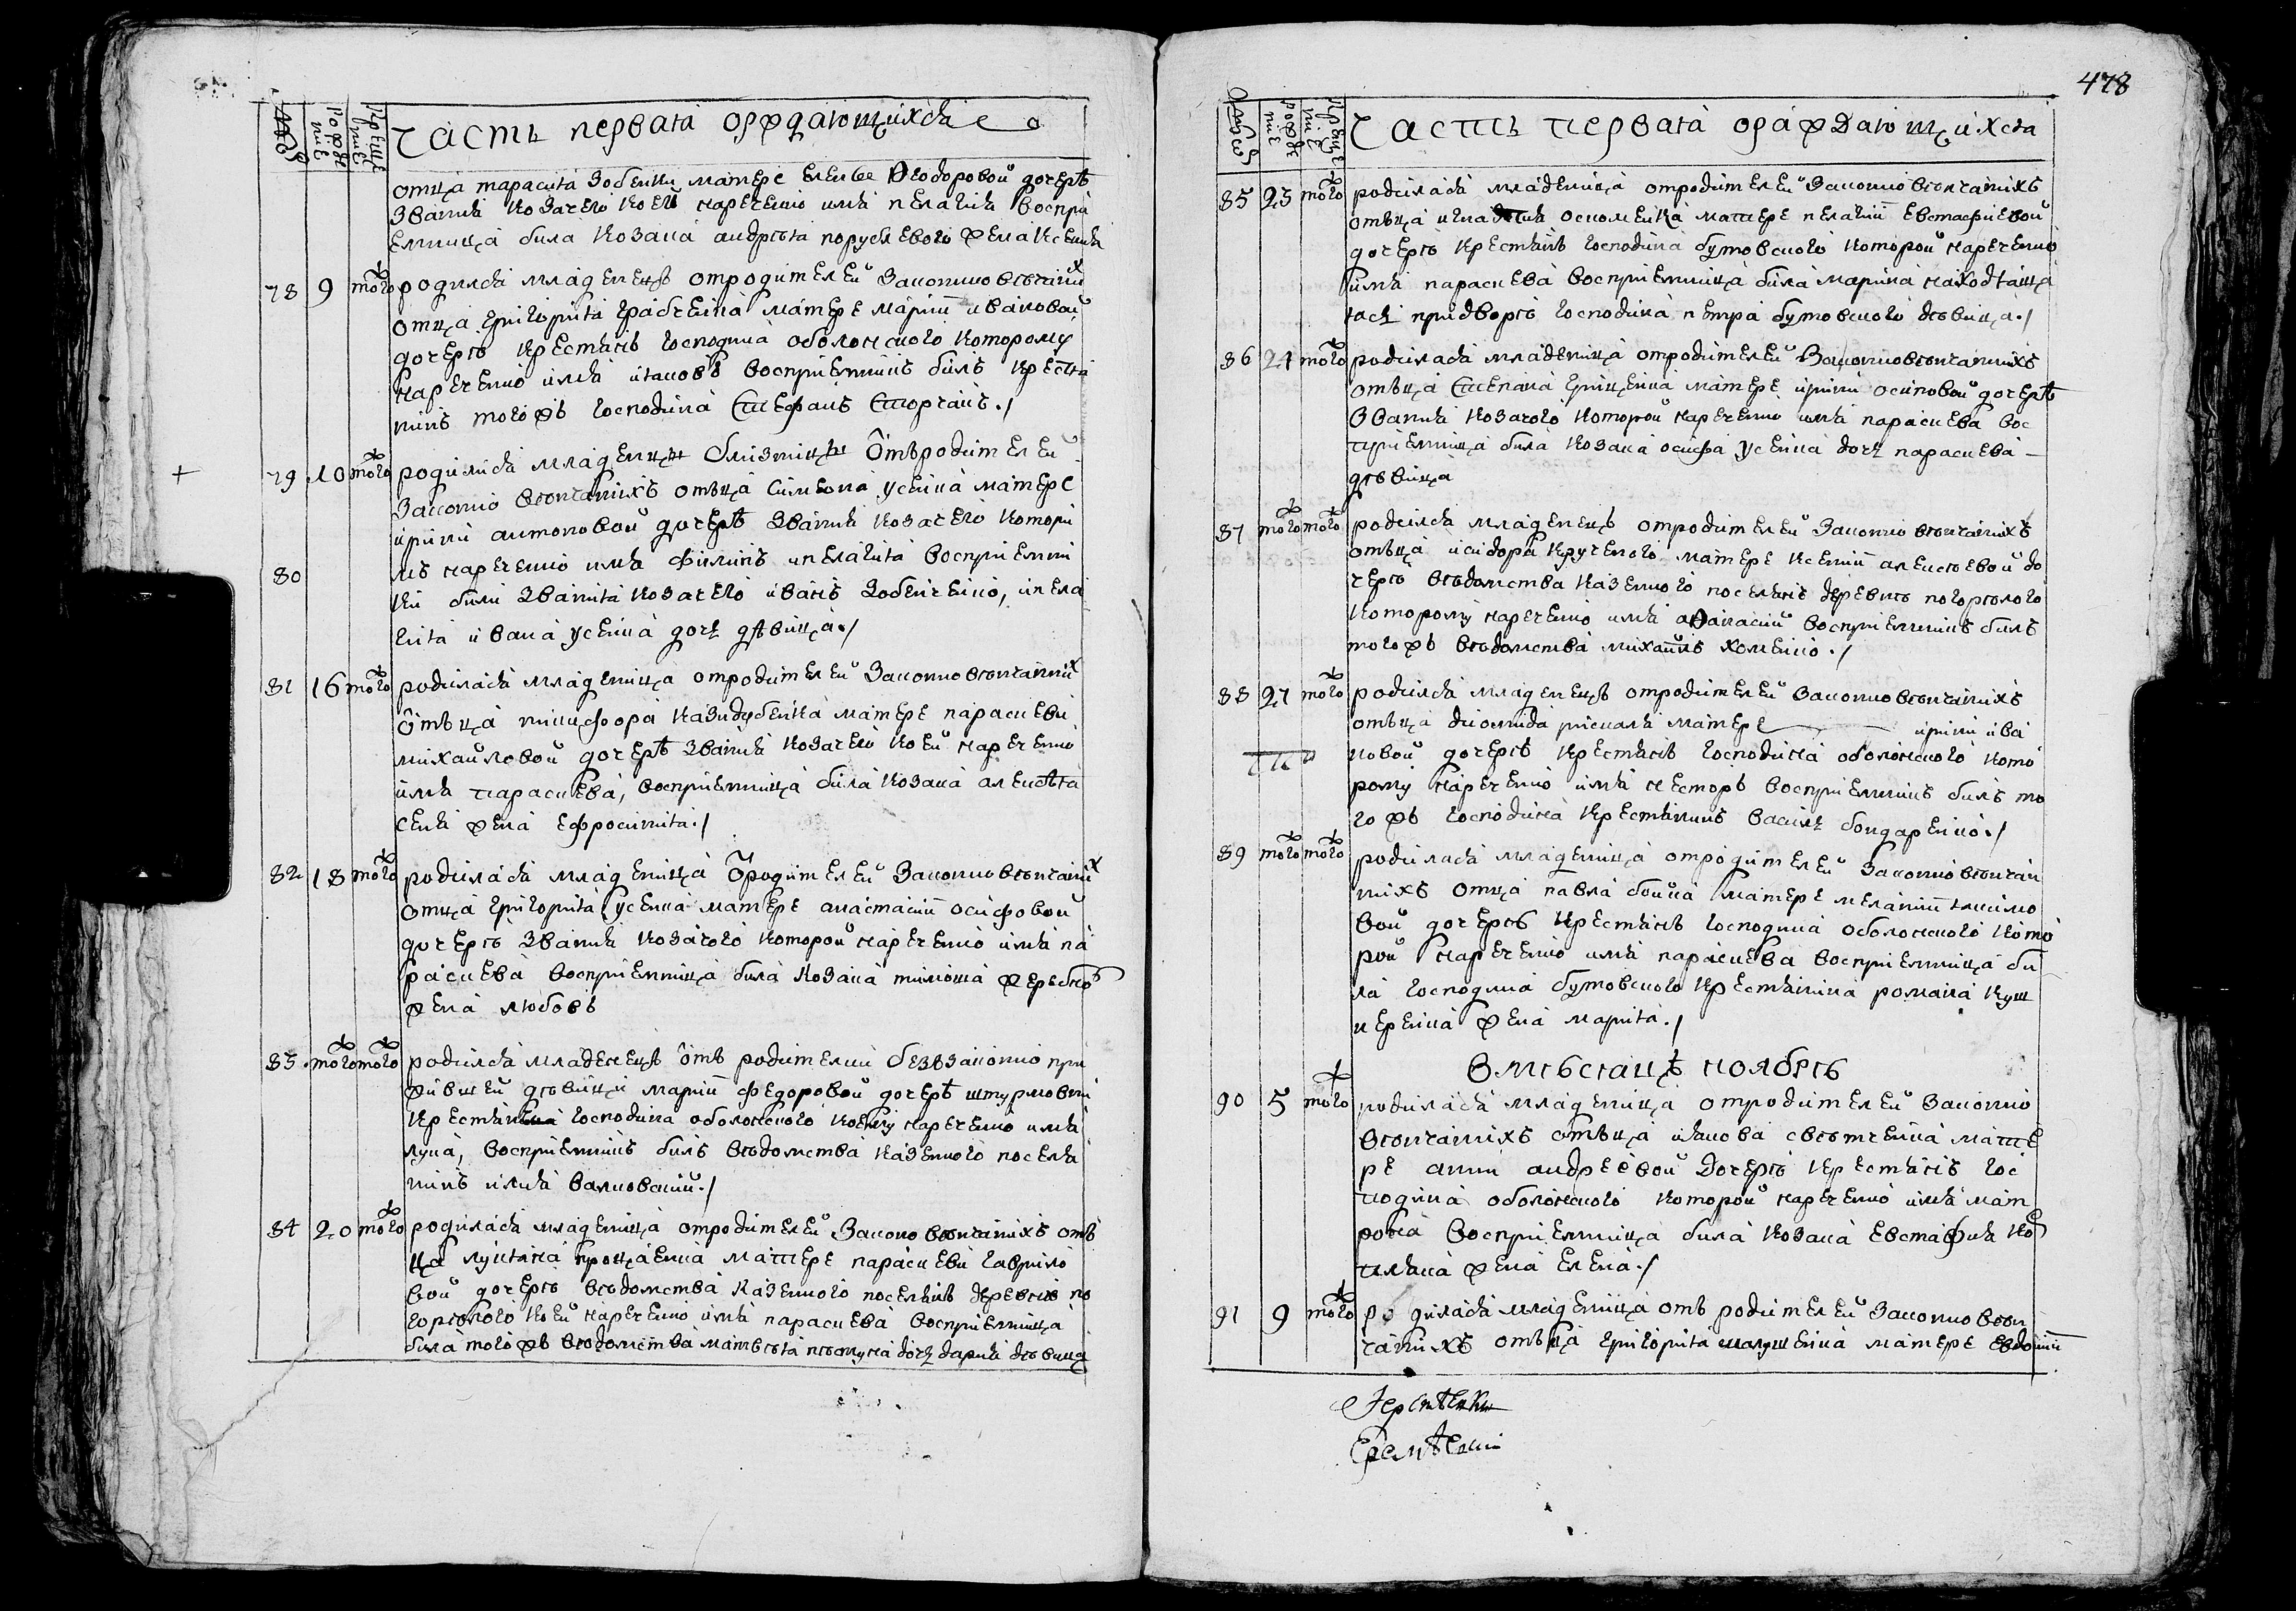 Часть первая орождающихся
отца тарасия Зобенки матере елены Феодоровой дочерѣ
Звания козачего коей наречено имя пелагия воспри
емница била козака андрѣя жена ксения
78 9 того ж родился младенецъ отродителей Законновѣнчаних
отца григория грабченка матере марии ивановой
дочерѣ крестянъ господина оболонского которому
наречено имя иаковъ восприемникъ билъ крестя
нинъ тогожъ господина Стефанъ Сторчакъ./
79 10 того ж родилися младенци близници отъродителей
Законно вѣнчанихъ отъца симеона усенка матере
ирини антоновой дочерѣ Звания козачего котори
80 мъ наречено имя филипъ ипелагия восприемни
ки били Звания козачего иванъ Зобенченко, ипела
гия ивана усенка дочь дѣвица./
81 16 того ж родилася младеница отродителей Законновѣнчанних
отъца никифора казидубенка матере параскеви
михайловой дочерѣ Звания козачего коей наречено
имя параскева, восприемница била козака алексѣя
жена ефросиния./
82 18 того ж родилася младеница отродителей Законновѣнчаних
отца григория усенка матере анастасии осифовой
дочерѣ Звания козачого которой наречено имя па
раскева восприемница била козака тимоша
жена любовъ
83 того ж того ж родился младенецъ отъ родителки безъзаконно при
жившей дѣвици марии федоровой дочерѣ
господина оболонского коему наречено имя
лука, восприемникъ билъ вѣдомства казенного поселя
нинъ илия валковский./
84 20 того ж родилася младеница отродителей Законо вѣнчанихъ отъ
ца лукияна матере параскеви гаврило
вой дочерѣ вѣдомства казенного поселянъ деревнѣ по
горѣлого коей наречено имя параскева восприемница
била тогожъ вѣдомства матвѣя дочь дария дѣвица
478
Часть первая орождаютщихся
85 23 того ж родилася младеница отродителей Законно вѣнчанихъ
отъца игнатия осиоменка матере пелагии евстафиевой
дочерѣ крестянъ господина бутовского которой наречено
имя параскева восприемница била марина находяща
яся придворѣ господина петра бутовского дѣвица./
86 24 того ж родилася младеница отродителей Законновѣнчаннихъ
отъца Степана гриценка матере ирини осиповой дочерѣ
Звания козачого которой наречено имя параскева вос
приемница била козака осифа усенка дочь параскева
дѣвица
87 того ж того ж родился младенецъ отродителей Законно вѣнчанихъ
отъца исидора крученого матере ксении алексѣевой до
черѣ вѣдомства казенного поселянъ деревнѣ погорѣлого
которому наречено имя афанасий восприемникъ билъ
тогожъ вѣдомства михаилъ хоменко./
88 27 того ж родился младенецъ отродителей Законновѣнчанихъ
отъца диомида матере ирини ива
новой дочерѣ крестянъ господина оболонского кото
рому наречено имя несторъ восприемникъ билъ то
гожъ господина крестянинъ василь бондаренко./
89 того ж того ж родилася младеница отродителей Законновѣнчан
нихъ отца павла бойка матере мелании
вой дочерѣ крестянъ господина оболонского кото
рой наречено имя параскева восприемница би
ла господина бутовского крестянина романа куш
неренка жена мария./
Вмѣсяцѣ ноябрѣ
90 5 того ж родилася младеница отродителей Законно
вѣнчанихъ отъца иакова мате
ре анни андреевой дочерѣ крестянъ гос
подина оболонского которой наречено имя мат
рона восприемница била козака евстафия
жена елена./
91 9 того ж родилася младеница отъ родителей Законновѣн
чанихъ отъца григория матере евдокии